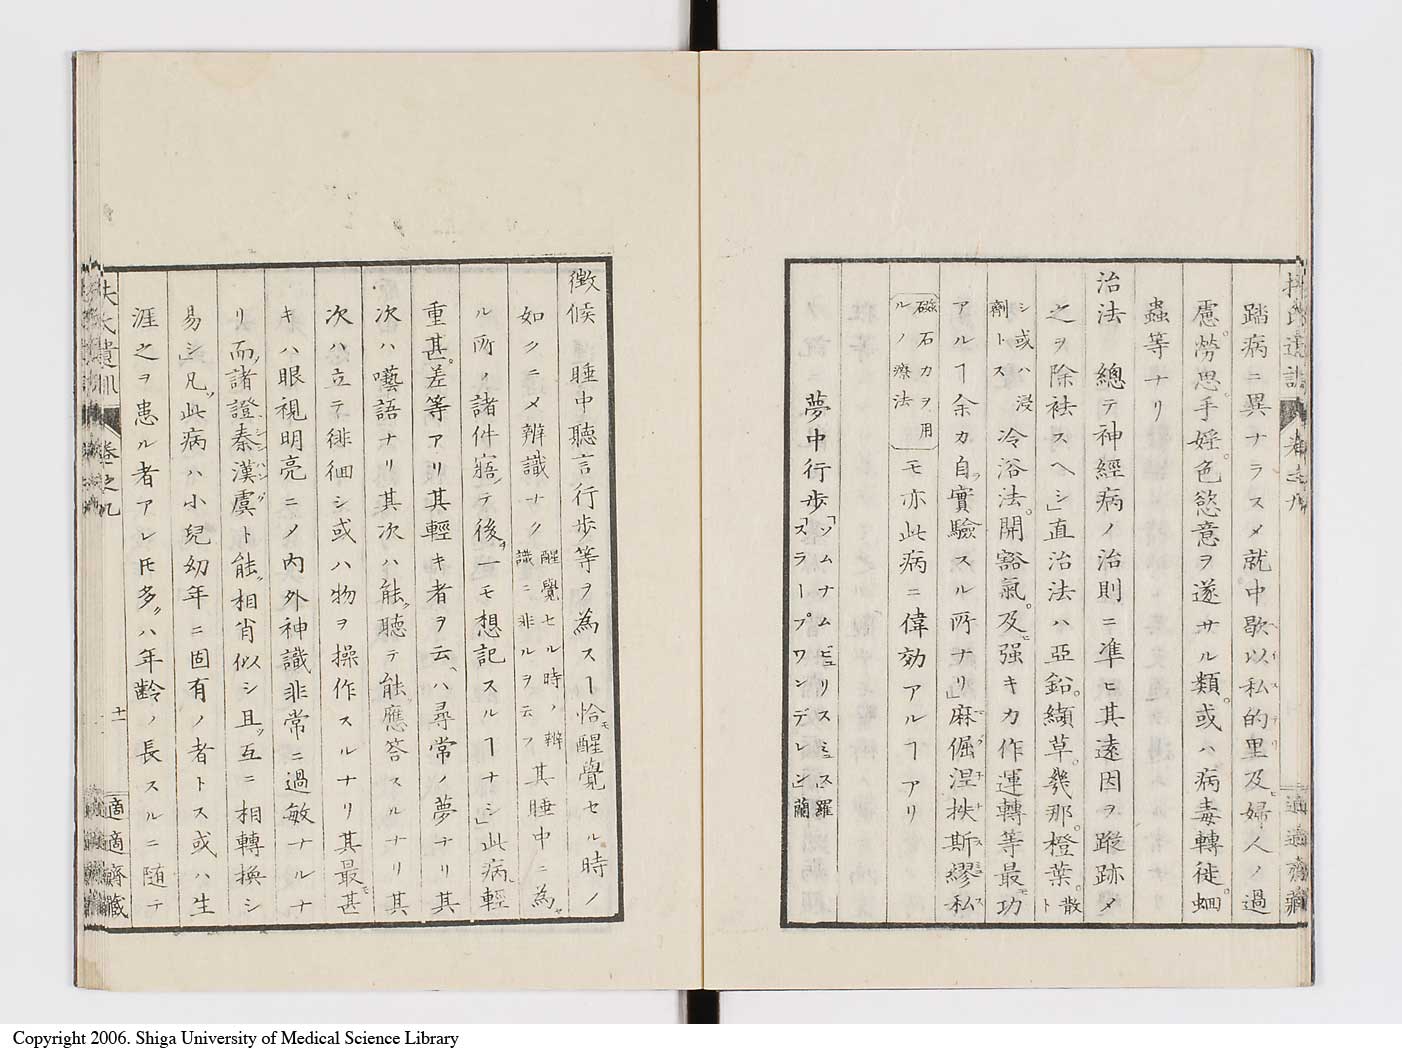 扶氏遺訓 卷之九 適適齋藏
踏病ニ異ナラスメ就中歇以私的里及婦人ノ過
慮。勞思。手婬。色慾意ヲ遂サル類。或ハ病毒轉徙。蛔
蟲等ナリ
治法 總テ神經病ノ治則ニ準ヒ其遠因ヲ蹤跡メ
之ヲ除袪スヘシ」直治法ハ亞鉛。纈草。幾那。橙葉。散ト
シ或ハ浸
劑トス 冷浴法。開豁氣。及ヒ强キカ作運轉等最モ功
アルヿ余カ自ラ實驗スル所ナリ」麻倔涅抶斯繆私
磁石カヲ用
ルノ療法 モ亦此病ニ偉効アルヿアリ
夢中行歩「ソムナムビュリスミュス」羅
「スラープワンデレン」蘭
徴候 睡中聽言行歩等ヲ為スヿ恰モ醒覺セル時ノ
如クニメ辨識ナク 醒覺セル時ノ辨
識ニ非ルヲ云フ 其睡中ニ為セ
ル所ノ諸件寤テ後ヲ一モ想記スルヿナシ」此病輕
重甚。差等アリ其輕キ者ヲ云ヘハ尋常ノ夢ナリ其
次ハ囈語ナリ其次ハ能ク聽テ能ク應答スルナリ其
次ハ立テ徘徊シ或ハ物ヲ操作スルナリ其最モ甚
キハ眼視明亮ニメ内外神識非常ニ過敏ナルナ
リ而ノ諸證秦漢虞ト能ク相肖似シ且ツ互ニ相轉換シ
易シ」凡ソ此病ハ小兒幼年ニ固有ノ者トス或ハ生
涯之ヲ患ル者アレ𪜈多クハ年齡ノ長スルニ随テ
扶氏遺訓 卷之九 十一 適適齋藏
Copyright 2006. Shiga University of Medical Science Library